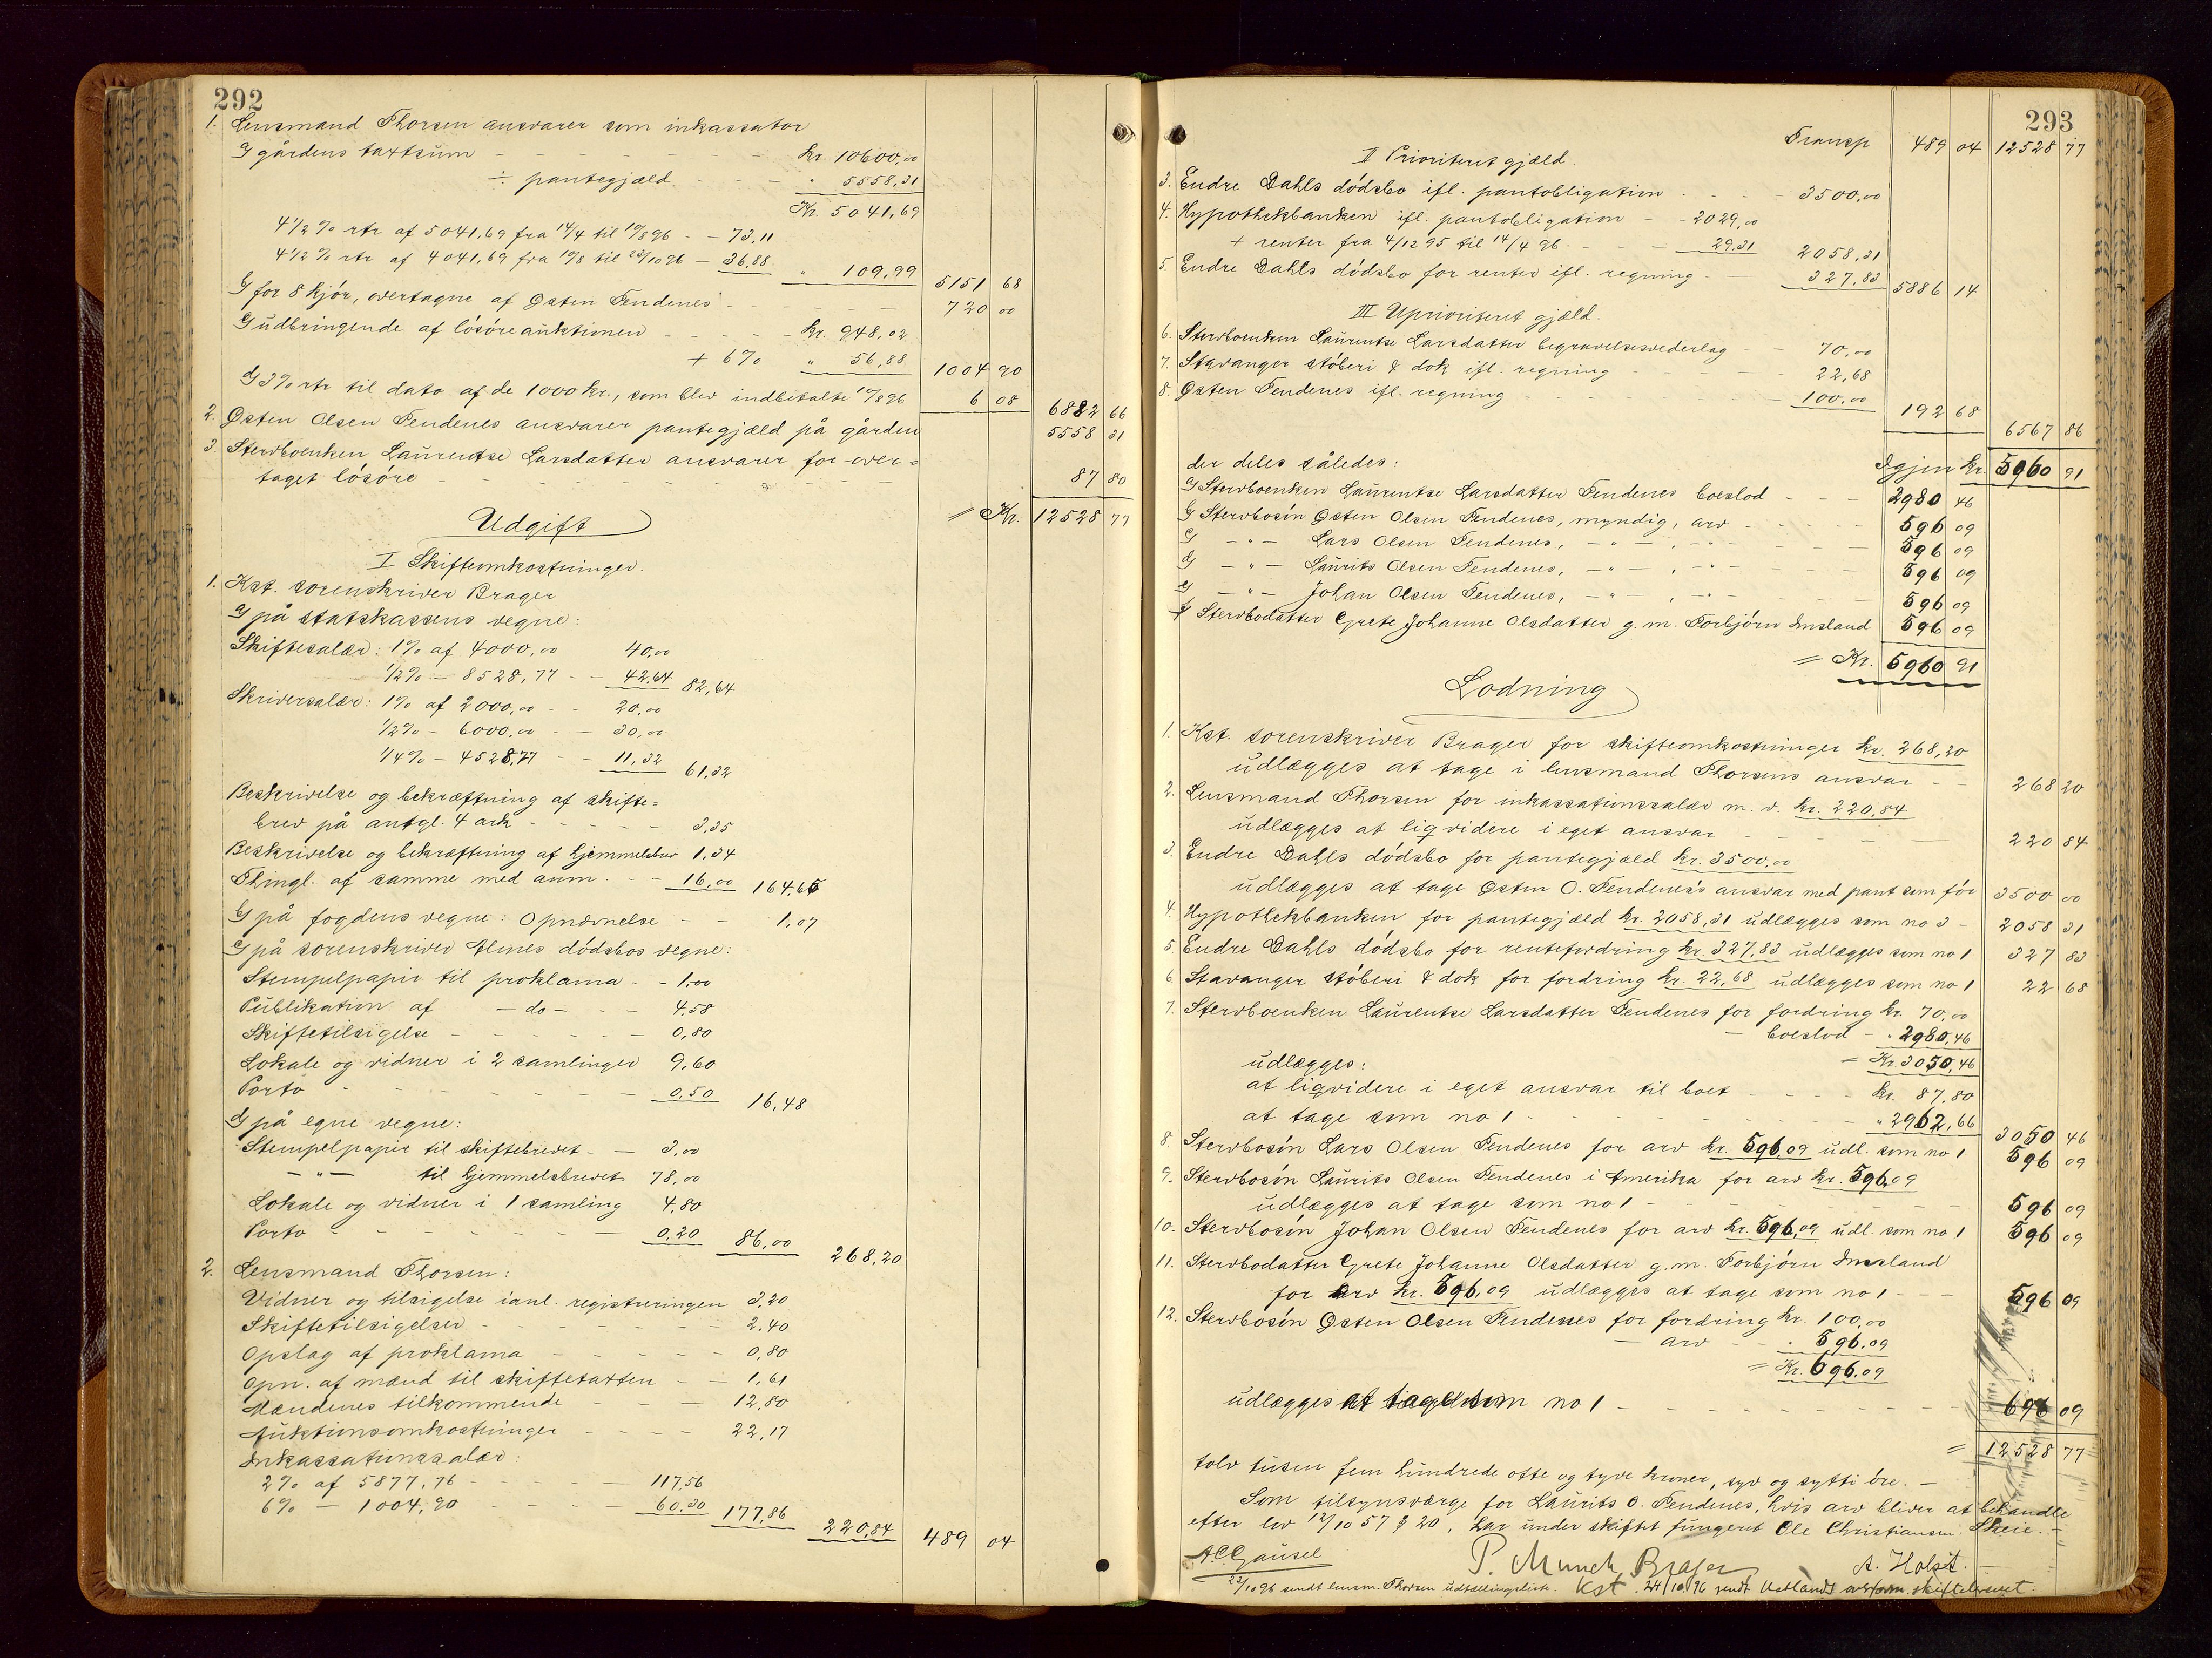 292
1. Lensmand Thorsen ansvarer som inkassator
G gårdens taxtsum - - - - - - kr. 10600,00
÷ pantegjæld - - - " 5558,31
Kr. 5041,69
4 1/2 % rtr af 5041,69 fra 14/4 til 10/8 96 - - 73,11
4 1/2 % rtr af 4041,69 fra 10/8 til 23/10 96 - 36,88 " 109,99 5151 68
G for 8 kjør, overtagne af Østen Tendenes - - - 720 00
G udbringende af løsøreauktionen - - - - kr. 948,02
+ 6% " 56,88 1004 90
G 3% rtr til dato af de 1000 kr., som blev indbetalte 10/8 96 6 08 6882 66
2. Østen Olsen Tendenes ansvarer pantegjæld på gården 5558 31
3. Stervboenken Laurentse Larsdatter ansvarer for over=
taget løsøre - - - - - - - - - 87 80
= Kr. 12528 77
Udgift
I Skifteomkostninger.
1. Kst. sorenskriver Brager
G på statskassens vegne:
Skiftesalær: 1% af 4000,00 40,00
1/2% - 8528,77 - - 42,64 82,64
Skriversalær: 1% af 2000,00 - - 20,00
1/2% - 6000,00 - - 30,00
1/4% - 4528,77 - - 11,32 61,32
Beskrivelse og bekræftning af skifte=
brev på antgl. 4 ark - - - - - 3,35
Beskrivelse og bekræftning af hjemmelsbrev 1,34
Thingl. af samme med anm. - - 16,00 164,65
G på fogdens vegne: Opnævnelse - - 1,07
G på sorenskriver Almes dødsbos vegne:
Stempelpapir til proklama - - 1,00
Publikation af - do - - - 4,58
Skiftetilsigelse - - - - - 0,80
Lokale og vidner i 2 samlinger 9,60
Porto - - - - - - - 0,50 16,48
G på egne vegne:
Stempelpapir til skiftebrevet - - 3,00
- " - til hjemmelsbrevet 78,00
Lokale og vidner i 1 samling 4,80
Porto - - - - - - - 0,20 86,00 268,20
2. Lensmand Thorsen:
Vidner og tilsigelse ianl. registreringen 3,20
Skiftetilsigelser - - - - - - 2,40
Opslag af proklama - - - - - 0,80
Opn. af mænd til skiftetaxten - - 1,61
Mændenes tilkommende - - - 12,80
Auktionsomkostninger - - - - 22,17
Inkassationssalær:
2% af 5877,76 - - - - 117,56
6% - 1004,90 - - - - 60,30 177,86 220,84 489 04
293
Transp 489 04 12528 77
II Prioriteret gjæld.
3. Endre Dahls dødsbo ifl. pantobligation - - - 3500,00
4. Hypothekbanken ifl. pantobligation - - 2029,00
+ renter fra 4/12 95 til 14/4 96 - - - 29,31 2058,31
5. Endre Dahls dødsbo for renter ifl. regning - - 327,83 5886 14
III Uprioriteret gjæld.
6. Stervboenken Laurentse Larsdatter begravelsesvederlag - - 70,00
7. Stavanger støberi & dok ifl. regning - - - 22,68
8. Østen Tendenes ifl. regning - - - - - 100,00 192 68 6567 86
Igjen kr. 5960 91
der deles således:
G Stervboenken Laurentse Larsdatter Tendenes boeslod - - - 2980 46
G Stervbosøn Østen Olsen Tendenes, myndig, arv - - - - 596 09
G - " - Lars Olsen Tendenes, - " - , - " - - - - 596 09
G - " - Laurits Olsen Tendenes, - " - , - " - - - - 596 09
G - " - Johan Olsen Tendenes, - " - , - " - - - - 596 09
G Stervbodatter Grete Johanne Olsdatter g. m. Torbjørn Imsland 596 09
= Kr. 5960 91
Lodning
1. Kst. sorenskriver Brager for skifteomkostninger kr. 268,20
udlægges at tage i lensmand Thorsens ansvar - - 268 20
2. Lensmand Thorsen for inkassationssalær m. v. kr. 220,84
udlægges at liqvidere i eget ansvar - - - - 220 84
3. Endre Dahls dødsbo for pantegjæld kr. 3500,00
udlægges at tage Østen O. Tendenes's ansvar med pant som før 3500 00
4. Hypothekbanken for pantegjæld kr. 2058,31 udlægges som no 3 - 2058 31
5. Endre Dahls dødsbo for rentefordring kr. 327,83 udlægges som no 1 327 83
6. Stavanger støberi & dok for fordring kr. 22,68 udlægges som no 1 22 68
7. Stervboenken Laurentse Larsdatter Tendenes for fordring kr. 70,00
- boeslod - " 2980,46
= Kr. 3050,46
udlægges:
at liqvidere i eget ansvar til boet - - - - kr. 87,80
at tage som no 1 - - - - - - - " 2962,66 3050 46
8. Stervbosøn Lars Olsen Tendenes for arv kr. 596,09 udl. som no 1 596 09
9. Stervbosøn Laurits Olsen Tendenes i Amerika for arv kr. 596,09
udlægges at tage som no 1 - - - - - - 596 09
10. Stervbosøn Johan Olsen Tendenes for arv kr. 596,09 udl. som no 1 596 09
11. Stervbodatter Grete Johanne Olsdatter g. m. Torbjørn Imsland
for arv kr. 596,09 udlægges at tage som no 1 - - - 596 09
12. Stervbosøn Østen Olsen Tendenes for fordring kr. 100,00
- arv - - " 596,09
= Kr. 696,09
udlægges at tage som no 1 - - - - - - - 696 09
= 12528 77
tolv tusen fem hundrede otte og tyve kroner, syv og sytti øre. -
Som tilsynsværge for Laurits O. Tendenes, hvis arv bliver at behandle
efter lov 12/10 57 § 20, har under skiftet fungeret Ole Christiansen Skeie. -
A. C. Gausel P. Munch Brager A. Holst.
23/10 96 sendt lensm. Thorsen udtællingslist. Kst. 24/10 96 sendt skiftebrevet.